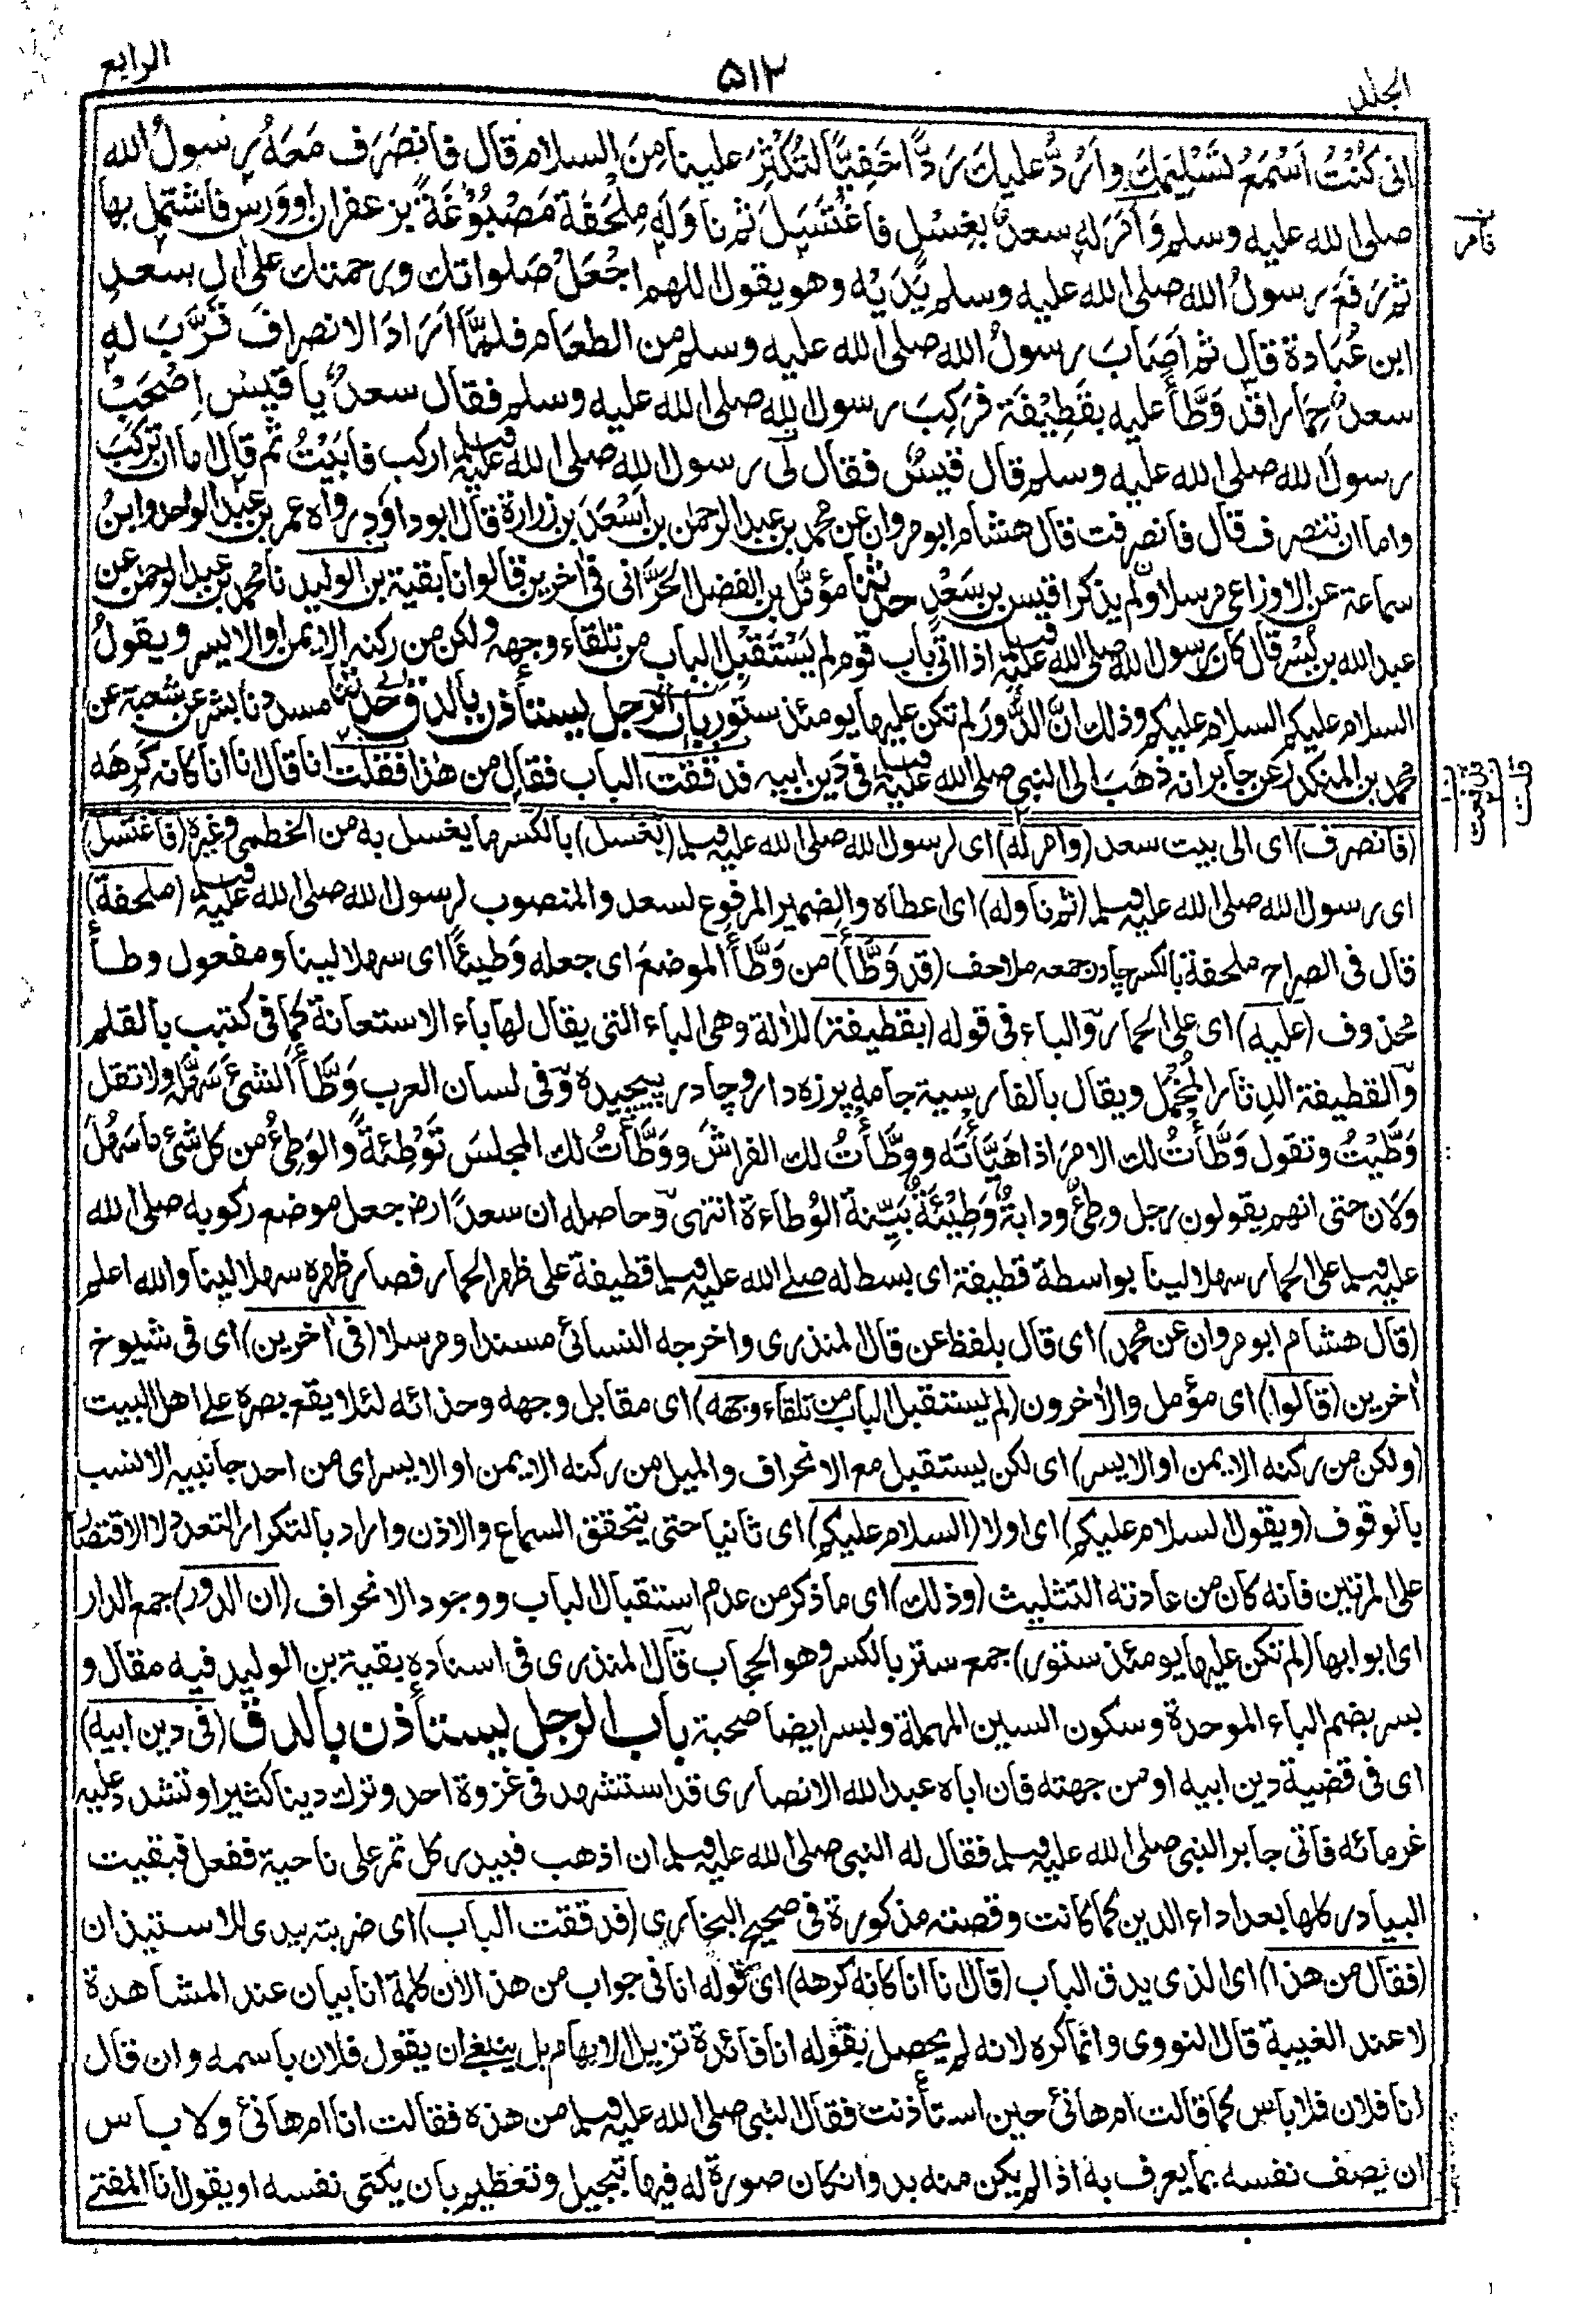 الجلد
۵۱۲
الرابع
انى كُنْتُ اَسْمَعُ تَسْلِيْمَكَ واَرُدُّ عليك رَدًّا خَفِيًّا لتُكْثِرَ علينا مِنَ السلام قال فانصَرَف مَعَهُ رسولُ الله
صلى الله عليه وسلم وَاَمَرَ له سعدٌ بغِسْلٍ فاغْتَسَلَ ثم نَاوَلَه مِلْحَفَة مَصْبُوْغَةً بزعفران او وَرس فاشتمل بها
ثم رَفَع رسولُ الله صلى الله عليه وسلم يَدَيْه وهو يقول اللهم اجْعَلْ صَلَواتك ورحمتك على اٰل سعد
ابن عُبَادة قال ثم اَصَابَ رسولُ الله صلى الله عليه وسلم من الطعَام فلمَّا اَرَادَ الانصراف قَرَّبَ له
سعدٌ حِمَارا قد وَطَّأَ عليه بقَطِيْفَة فرَكِبَ رسول الله صلى الله عليه وسلم فقال سعدٌ يا قيس اِصْحَبْ
رسولَ الله صلى الله عليه وسلم قال قيسٌ فقال لى رسول الله صلى الله عليه وسلم اركب فابَيْتُ ثم قال اما ان تركَبَ
واما ان تنصرف قال فانصرفت قال هشام ابو مروان عن محمد بن عبد الرحمن بن اَسْعَدَ بن زرارة قال ابو داؤد رواه عمر بن عبد الواحد وابنُ
سماعة عن الاوزاعى مرسلا ولم يذكرا قيس بن سَعْدٍ حدثنا مؤمَّل بن الفضل الحَرَّانى فى اٰخرين قالوا نا بقية بن الوليد نا محمد بن عبد الرحمن عن
عبد الله بن بُسْر قال كان رسول الله صلى الله عليه وسلم اذا اتى باب قوم لم يَسْتَقْبِل الباب من تلقاء وجهه ولكن من ركنه الايمن او الايسر ويقولُ
السلام عليكم السلام عليكم وذلك انَّ الدُّورَ لم تكن عليها يومئذ ستور باب الرجل يستأذن بالدق حدثنا مسدد نا بشر عن شعبة عن
محمد بن المنكدر عن جابر انه ذهَبَ الى النبى صلى الله عليه وسلم فى دَين ابيه فدققت الباب فقال من هٰذا فقلت انا قال انا انا كانه كَرِهَه
(فانصرف) اى الى بيت سعد (وامر له) اى لرسول الله صلى الله عليه وسلم (بغسل) بالكسر ما يغسل به من الخطمى وغيره (فاغتسل)
اى رسول الله صلى الله عليه وسلم (ثم ناوله) اى اعطاه والضمير المرفوع لسعد والمنصوب لرسول الله صلى الله عليه وسلم (ملحفة)
قال فى الصراح ملحفة بالكسر چادر جمعه ملاحف (قد وَطَّأَ) من وَطَّأَ الموضعَ اى جعله وَطيئًا اى سهلا لينا ومفعول وطأ
محذوف (عليه) اى على الحمار والباء فى قوله (بقطيفة) للاٰلة وهى الباء التى يقال لها باء الاستعانة كما فى كتبت بالقلم
والقطيفة الدثار المُخْمَل ويقال بالفارسية جامه پرزه دار وچادر پيچيده وفى لسان العرب وَطَّأَ الشئَ سَهَّله ولا تقل
وَطَّيْتُ وتقول وَطَّأتُ لك الامر اذا هَيَّأتَه ووطَّأْتُ لك الفراشَ ووَطَّأتُ لك المجلسَ تَوْطِئةً والوَطِئُ من كل شئ ما سَهُلَ
وَلَان حتى انهم يقولون رجل وطِئٌ ودابةٌ وَطِيْئَةٌ بَيِّنة الوُطاءة انتهى وحاصله ان سعدًا رض جعل موضع ركوبه صلى الله
عليه وسلم على الحمار سهلا لينا بواسطة قطيفة اى بسط له صلى الله عليه وسلم قطيفة على ظهر الحمار فصار ظهره سهلا لينا والله اعلم
(قال هشام ابو مروان عن محمد) اى قال بلفظ عن قال المنذرى واخرجه النسائى مسندا ومرسلا (فى اٰخرين) اى فى شيوخ
اٰخرين (قالوا) اى مؤمل والاٰخرون (لم يستقبل الباب من تلقاء وجهه) اى مقابل وجهه وحذائه لئلا يقع بصره على اهل البيت
(ولكن من ركنه الايمن او الايسر) اى لكن يستقبل مع الانحراف والميل من ركنه الايمن او الايسر اى من احد جانبيه الانسب
بالوقوف (ويقول السلام عليكم) اى اولا (السلام عليكم) اى ثانيا حتى يتحقق السماع والاذن واراد بالتكرار التعدد لا الاقتصار
على المرتين فانه كان من عادته التثليث (وذلك) اى ما ذكر من عدم استقبال الباب ووجود الانحراف (ان الدور) جمع الدار
اى ابوابها (لم تكن عليها يومئذ ستور) جمع ستر بالكسر وهو الحجاب قال المنذرى فى اسناده بقية بن الوليد فيه مقال و
بسر بضم الباء الموحدة وسكون السين المهملة ولبسر ايضا صحبة باب الرجل يستأذن بالدق (فى دين ابيه)
اى فى قضية دين ابيه او من جهته فان اباه عبد الله الانصارى قد استشهد فى غزوة احد وترك دينا كثيرا وتشدد عليه
غرمائه فاتى جابر النبى صلى الله عليه وسلم فقال له النبى صلى الله عليه وسلم ان اذهب فبيدر كل تمر على ناحية ففعل فبقيت
البيادر كلها بعد اداء الدين كما كانت وقصته مذكورة فى صحيح البخارى (فدققت الباب) اى ضربته بيدى للاستئذان
(فقال من هذا) اى الذى يدق الباب (قال انا انا كانه كرهه) اى قوله انا فى جواب من هذا لان كلمة انا بيان عند المشاهدة
لا عند الغيبة قال النووى وانما كره لانه لم يحصل بقوله انا فائدة تزيل الابهام بل ينبغى ان يقول فلان باسمه وان قال
انا فلان فلا باس كما قالت ام هانئ حين استأذنت فقال النبى صلى الله عليه وسلم من هذه فقالت انا ام هانئ ولا باس
ان يصف نفسه بما يعرف به اذا لم يكن منه بد وان كان صورة له فيها تبجيل وتعظيم بان يكنى نفسه او يقول انا المفتى
فامر